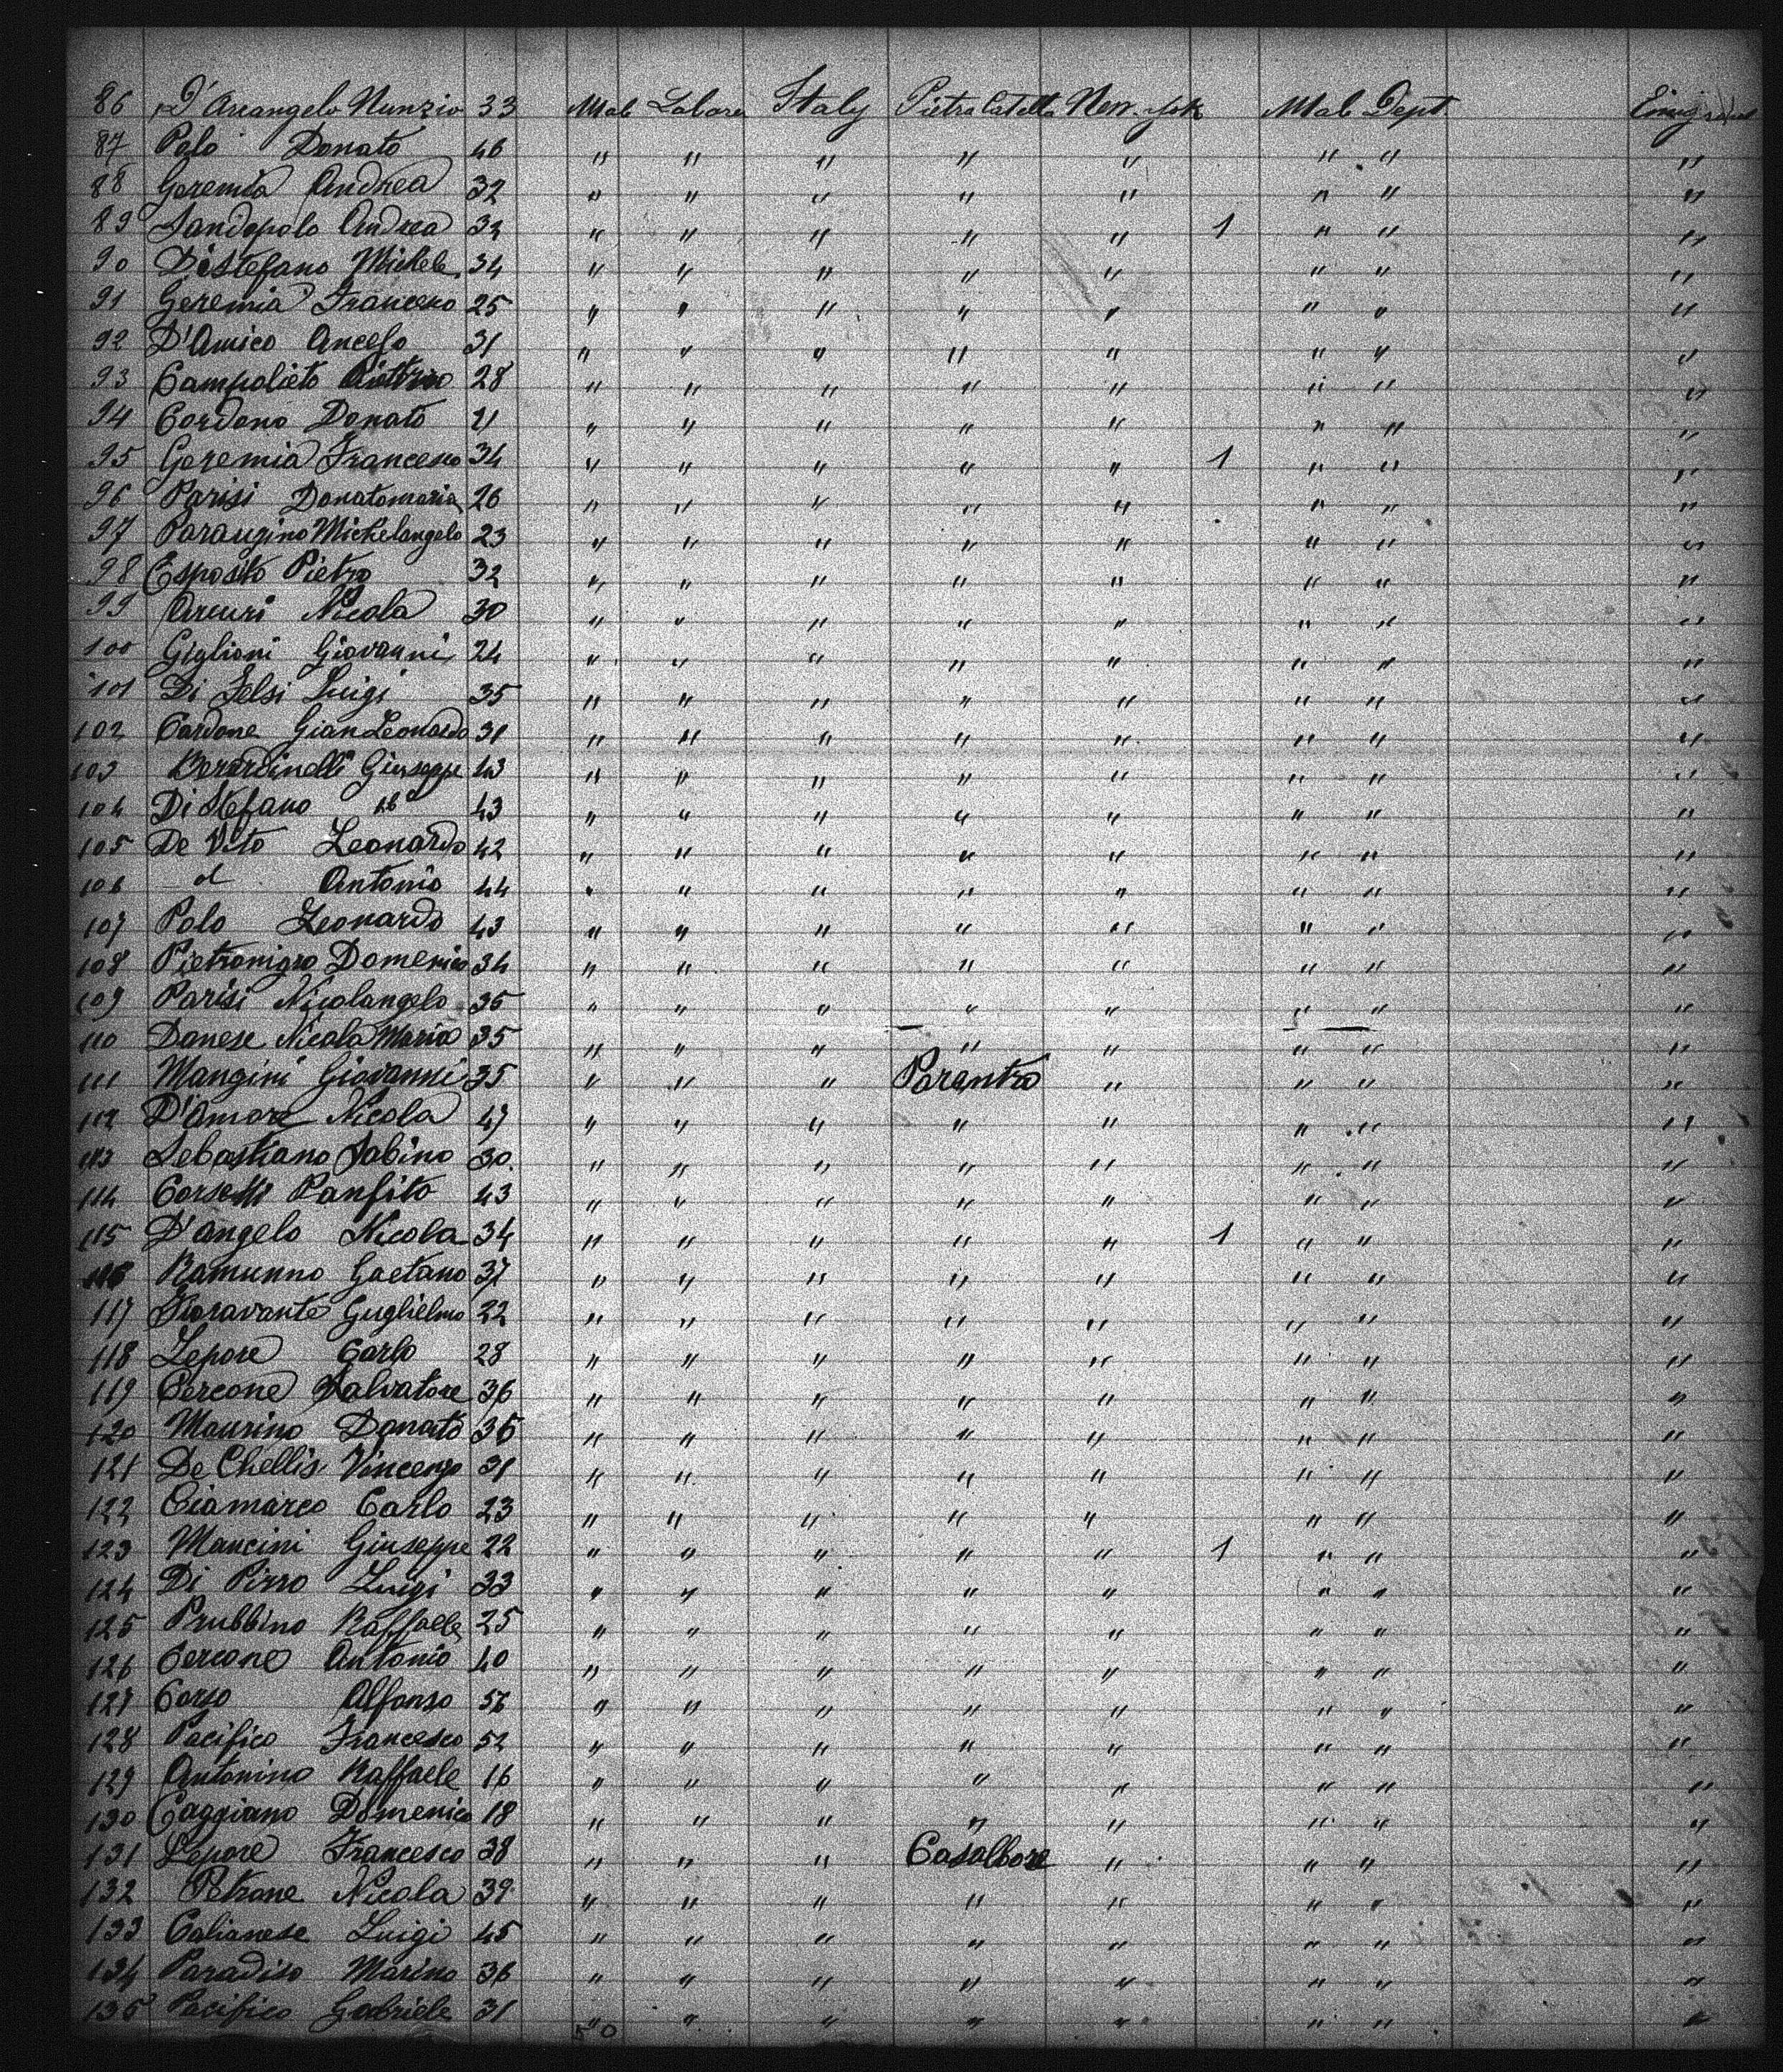 86 D'Arcangelo Nunzio 33 Male Labore Italy Pietra Catella New-York Male Dept.
87 Polo Donato 46 " " " " " " " "
88 Geremia Andrea 32 " " " " " " " "
89 Sandopolo Andrea 32 " " " " " 1 " " "
90 Distefano Michele 34 " " " " " " " "
91 Geremia Francesco 25 " " " " " " " "
92 D'Amico 31 " " " " " " " "
93 Campolieto 28 " " " " " " " "
94 Cordono Donato 21 " " " " " " " "
95 Geremia Francesco 34 " " " " " 1 " " "
96 Parisi Donatomaria 26 " " " " " " " "
97 Michelangelo 23 " " " " " " " "
98 Esposito Pietro 32 " " " " " " " "
99 Arcuri Nicola 30 " " " " " " " "
100 Giglioni Giovanni 24 " " " " " " " "
101 Di Jelsi Luigi 35 " " " " " " " "
102 Cardone GianLeonardo 31 " " " " " " " "
103 Berardinelli Giuseppe 43 " " " " " " " "
104 Di Stefano 43 " " " " " " " "
105 De Vito Leonardo 42 " " " " " " " "
106 Antonio 44 " " " " " " " "
107 Polo Leonardo 43 " " " " " " " "
108 Pietronigro Domenico 34 " " " " " " " "
109 Parisi Nicolangelo 36 " " " " " " " "
110 Danese Nicola Maria 35 " " " " " " " "
111 Mangini Giovanni 35 " " " Parentro " " " "
112 D'Amore Nicola 47 " " " " " " " "
113 Sebastiano Sabino 30 " " " " " " " "
114 Corsetti Panfito 43 " " " " " " " "
115 D'angelo Nicola 34 " " " " " 1 " " "
116 Ramunno Gaetano 37 " " " " " " " "
117 Fioravante Guglielmo 22 " " " " " " " "
118 Lepore Carlo 28 " " " " " " " "
119 Cercone Salvatore 36 " " " " " " " "
120 Maurino Donato 36 " " " " " " " "
121 De Chellis Vincenzo 31 " " " " " " " "
122 Ciamarco Carlo 23 " " " " " " " "
123 Mancini Giuseppe 22 " " " " " 1 " " "
124 Di Pirro Luigi 33 " " " " " " " "
125 Prubbino Raffaele 25 " " " " " " " "
126 Cercone Antonio 40 " " " " " " " "
127 Corso Alfonso 56 " " " " " " " "
128 Pacifico Francesco 52 " " " " " " " "
129 Antonino Raffaele 16 " " " " " " " "
130 Caggiano Domenico 18 " " " " " " " "
131 Lepore Francesco 38 " " " Casalbore " " " "
132 Petrone Nicola 39 " " " " " " " "
133 Calianese Luigi 45 " " " " " " " "
134 Paradiso Marino 36 " " " " " " " "
135 Pacifico Gabriele 31 " " " " " " " "
50